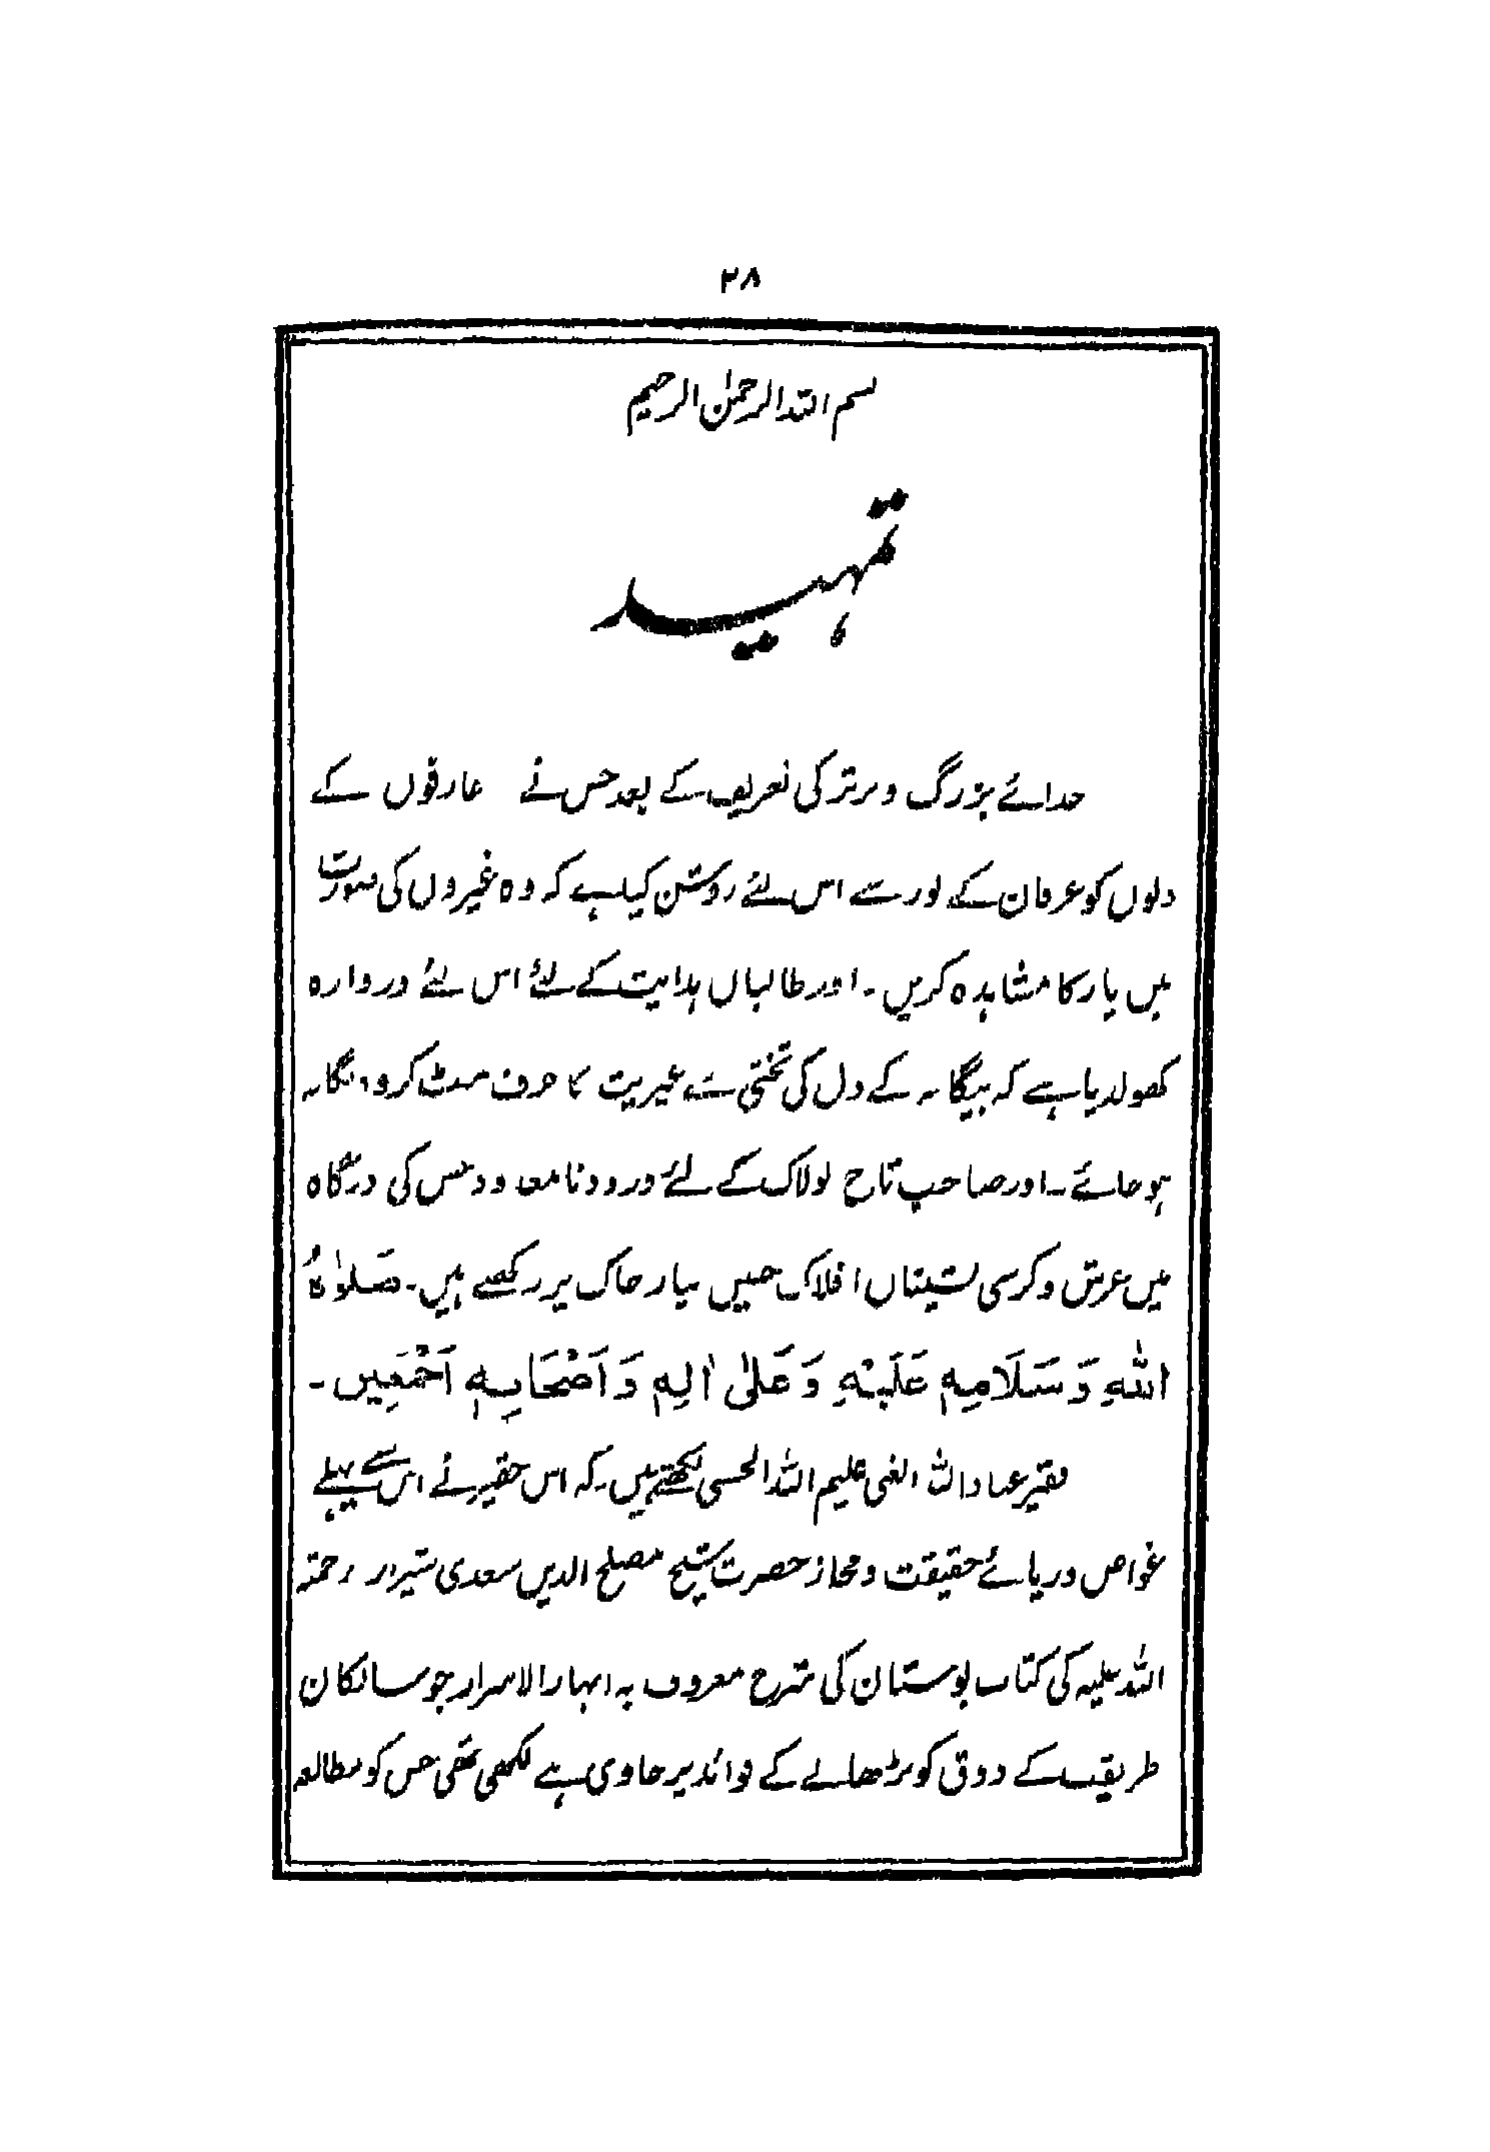 ۲۸
بسم اللہ الرحمٰن الرحیم
تمہید
خدائے بزرگ و برتر کی تعریف کے بعد جس نے عارفوں کے
دلوں کو عرفان کے نور سے اس لئے روشن کیا ہے کہ وہ غیروں کی صورت
میں یار کا مشاہدہ کریں۔ اور طالبان ہدایت کے لئے اس لئے دروازہ
کھولدیا ہے کہ بیگانہ کے دل کی تختی سے غیریت کا حرف مٹ کر وہ یگانہ
ہو جائے۔ اور صاحب تاج لولاک کے لئے درود نامعدود جس کی درگاہ
میں عرش و کرسی نشینان افلاک جبیں نیاز خاک پر رکھتے ہیں۔ صَلوٰةُ
اللهِ وَسَلَامِهِ عَلَيْهِ وَ عَلىٰ اٰلِهِ وَ اَصْحَابِهِ اَجْمَعِين۔
فقیر عباد اللہ الغنی علیم اللہ الحسنی لکھتے ہیں۔ کہ اس حقیر نے اس سے پہلے
غواص دریائے حقیقت و مجاز حضرت شیخ مصلح الدین سعدی شیراز رحمتہ
اللہ علیہ کی کتاب بوستان کی شرح معروف بہ انہار الاسرار جو سالکان
طریقت کے ذوق کو بڑھانے کے فوائد پر حاوی ہے لکھی تھی جس کو مطالعہ